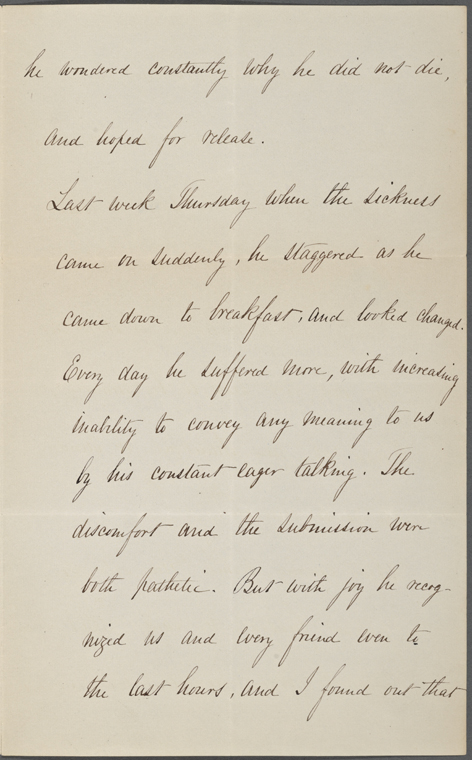 he wondered constantly why he did not die,
and hoped for release.
Last week Thursday when the sickness
came on suddenly, he staggered as he
came down to breakfast, and looked changed.
Every day he suffered more, with increasing
inability to convey any meaning to us
by his constant eager talking. The
discomfort and the submission were
both pathetic. But with joy he recog-
nized us and every friend even to
the last hours, and I found out that